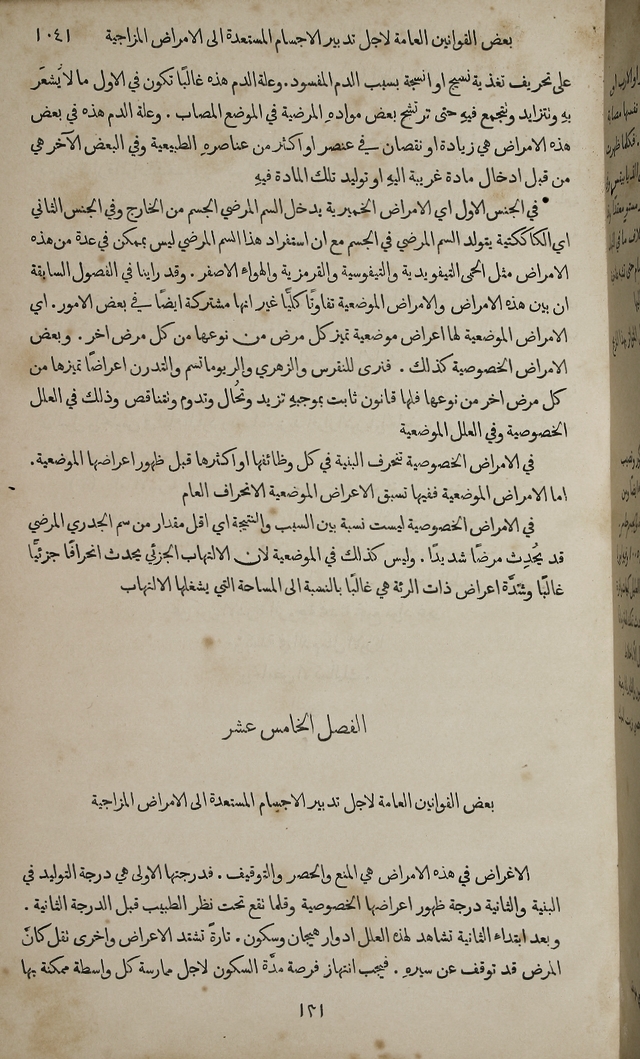 بعض القوانين العامة لاجل تدبير الاجسام المستعدة الى الامراض المزاجية ١٠٤١
على تحريف تغذية نسيج او انسجة بسبب الدم المفسود. وعلة الدم هذه غالبًا تكون في الاول ما لا يُشعَر
بهِ وتتزايد وتتجمع فيهِ حتى ترتشح بعض موادهِ المرضية في الموضع المصاب. وعلة الدم هذه في بعض
هذه الامراض هي زيادة او نقصان في عنصر او اكثر من عناصرهِ الطبيعية وفي البعض الآخر هي
من قبل ادخال مادة غريبة اليهِ او توليد تلك المادة فيهِ
في الجنس الاول اي الامراض الخميرية يدخل السم المرضي الجسم من الخارج وفي الجنس الثاني
اي الكاككتية يتولد السم المرضي في الجسم مع ان استفراد هذا السم المرضي ليس بممكن في عدة من هذه
الامراض مثل الحمى التيفويدية والتيفوسية والقرمزية والهواء الاصفر. وقد راينا في الفصول السابقة
ان بين هذه الامراض والامراض الموضعية تفاوتًا كليًّا غير انها مشتركة ايضًا في بعض الامور. اي
الامراض الموضعية لها اعراض موضعية تميز كل مرض من نوعها من كل مرض اخر. وبعض
الامراض الخصوصية كذلك. فنرى للنقرس والزهري والريوماتسم والتدرن اعراضًا تميزها من
كل مرض اخر من نوعها فلها قانون ثابت بموجبهِ تزيد وتحُال وتدوم وتتناقص وذلك في العلل
الخصوصية وفي العلل الموضعية
في الامراض الخصوصية تنحرف البنية في كل وظائفها او اكثرها قبل ظهور اعراضها الموضعية.
اما الامراض الموضعية ففيها تسبق الاعراض الموضعية الانحراف العام
في الامراض الخصوصية ليست نسبة بين السبب والنتيجة اي اقل مقدار من سم الجدري المرضي
قد يُحدِث مرضًا شديدًا. وليس كذلك في الموضعية لان الالتهاب الجزئي يحدث انحرافًا جزئيًّا
غالبًا وشدَّة اعراض ذات الرئة هي غالبًا بالنسبة الى المساحة التي يشغلها الالتهاب
الفصل الخامس عشر
بعض القوانين العامة لاجل تدبير الاجسام المستعدة الى الامراض المزاجية
الاغراض في هذه الامراض هي المنع والحصر والتوقيف. فدرجتها الاولى هي درجة التوليد في
البنية والثانية درجة ظهور اعراضها الخصوصية وقلما تقع تحت نظر الطبيب قبل الدرجة الثانية.
وبعد ابتداء الثانية تشاهد لهذه العلل ادوار هيجان وسكون. تارةً تشتد الاعراض واخرى تقل كأنَّ
المرض قد توقف عن سيرهِ. فيجب انتهاز فرصة مدَّة السكون لاجل ممارسة كل واسطة ممكنة بها
١٣١